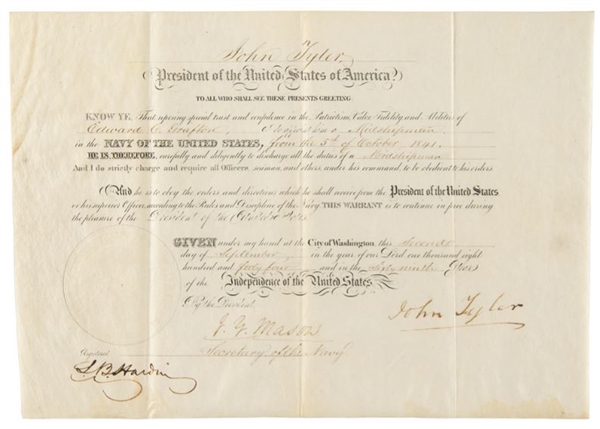 John Tyler,
President of the United States of America,
TO ALL WHO SHALL SEE THESE PRESENTS GREETING:
KNOW YE, That reposing special trust and confidence in the Patriotism, Valor, Fidelity and Abilities of
Edward C. I appoint him a Midshipman
in the NAVY OF THE UNITED STATES, from the 5th of October 1841.
HE IS, THEREFORE, carefully and diligently to discharge all the duties of a Midshipman
And I do strictly charge and require all Officers, seaman, and others, under his command, to be obedient to his orders
And he is to obey the orders and directions which he shall receive from the President of the United States
or his superior Officer, according to the Rules and Discipline of the Navy THIS WARRANT is to continue in force during
the pleasure of the President of the United States
GIVEN under my hand at the City of Washington this Second
day of September, in the year of our Lord one thousand eight
hundred and forty four and in the Sixty ninth Year
of the Independence of the United States.
By the President
John Tyler
J. Y. Mason
Secretary of the Navy
Registered
L B Hardin